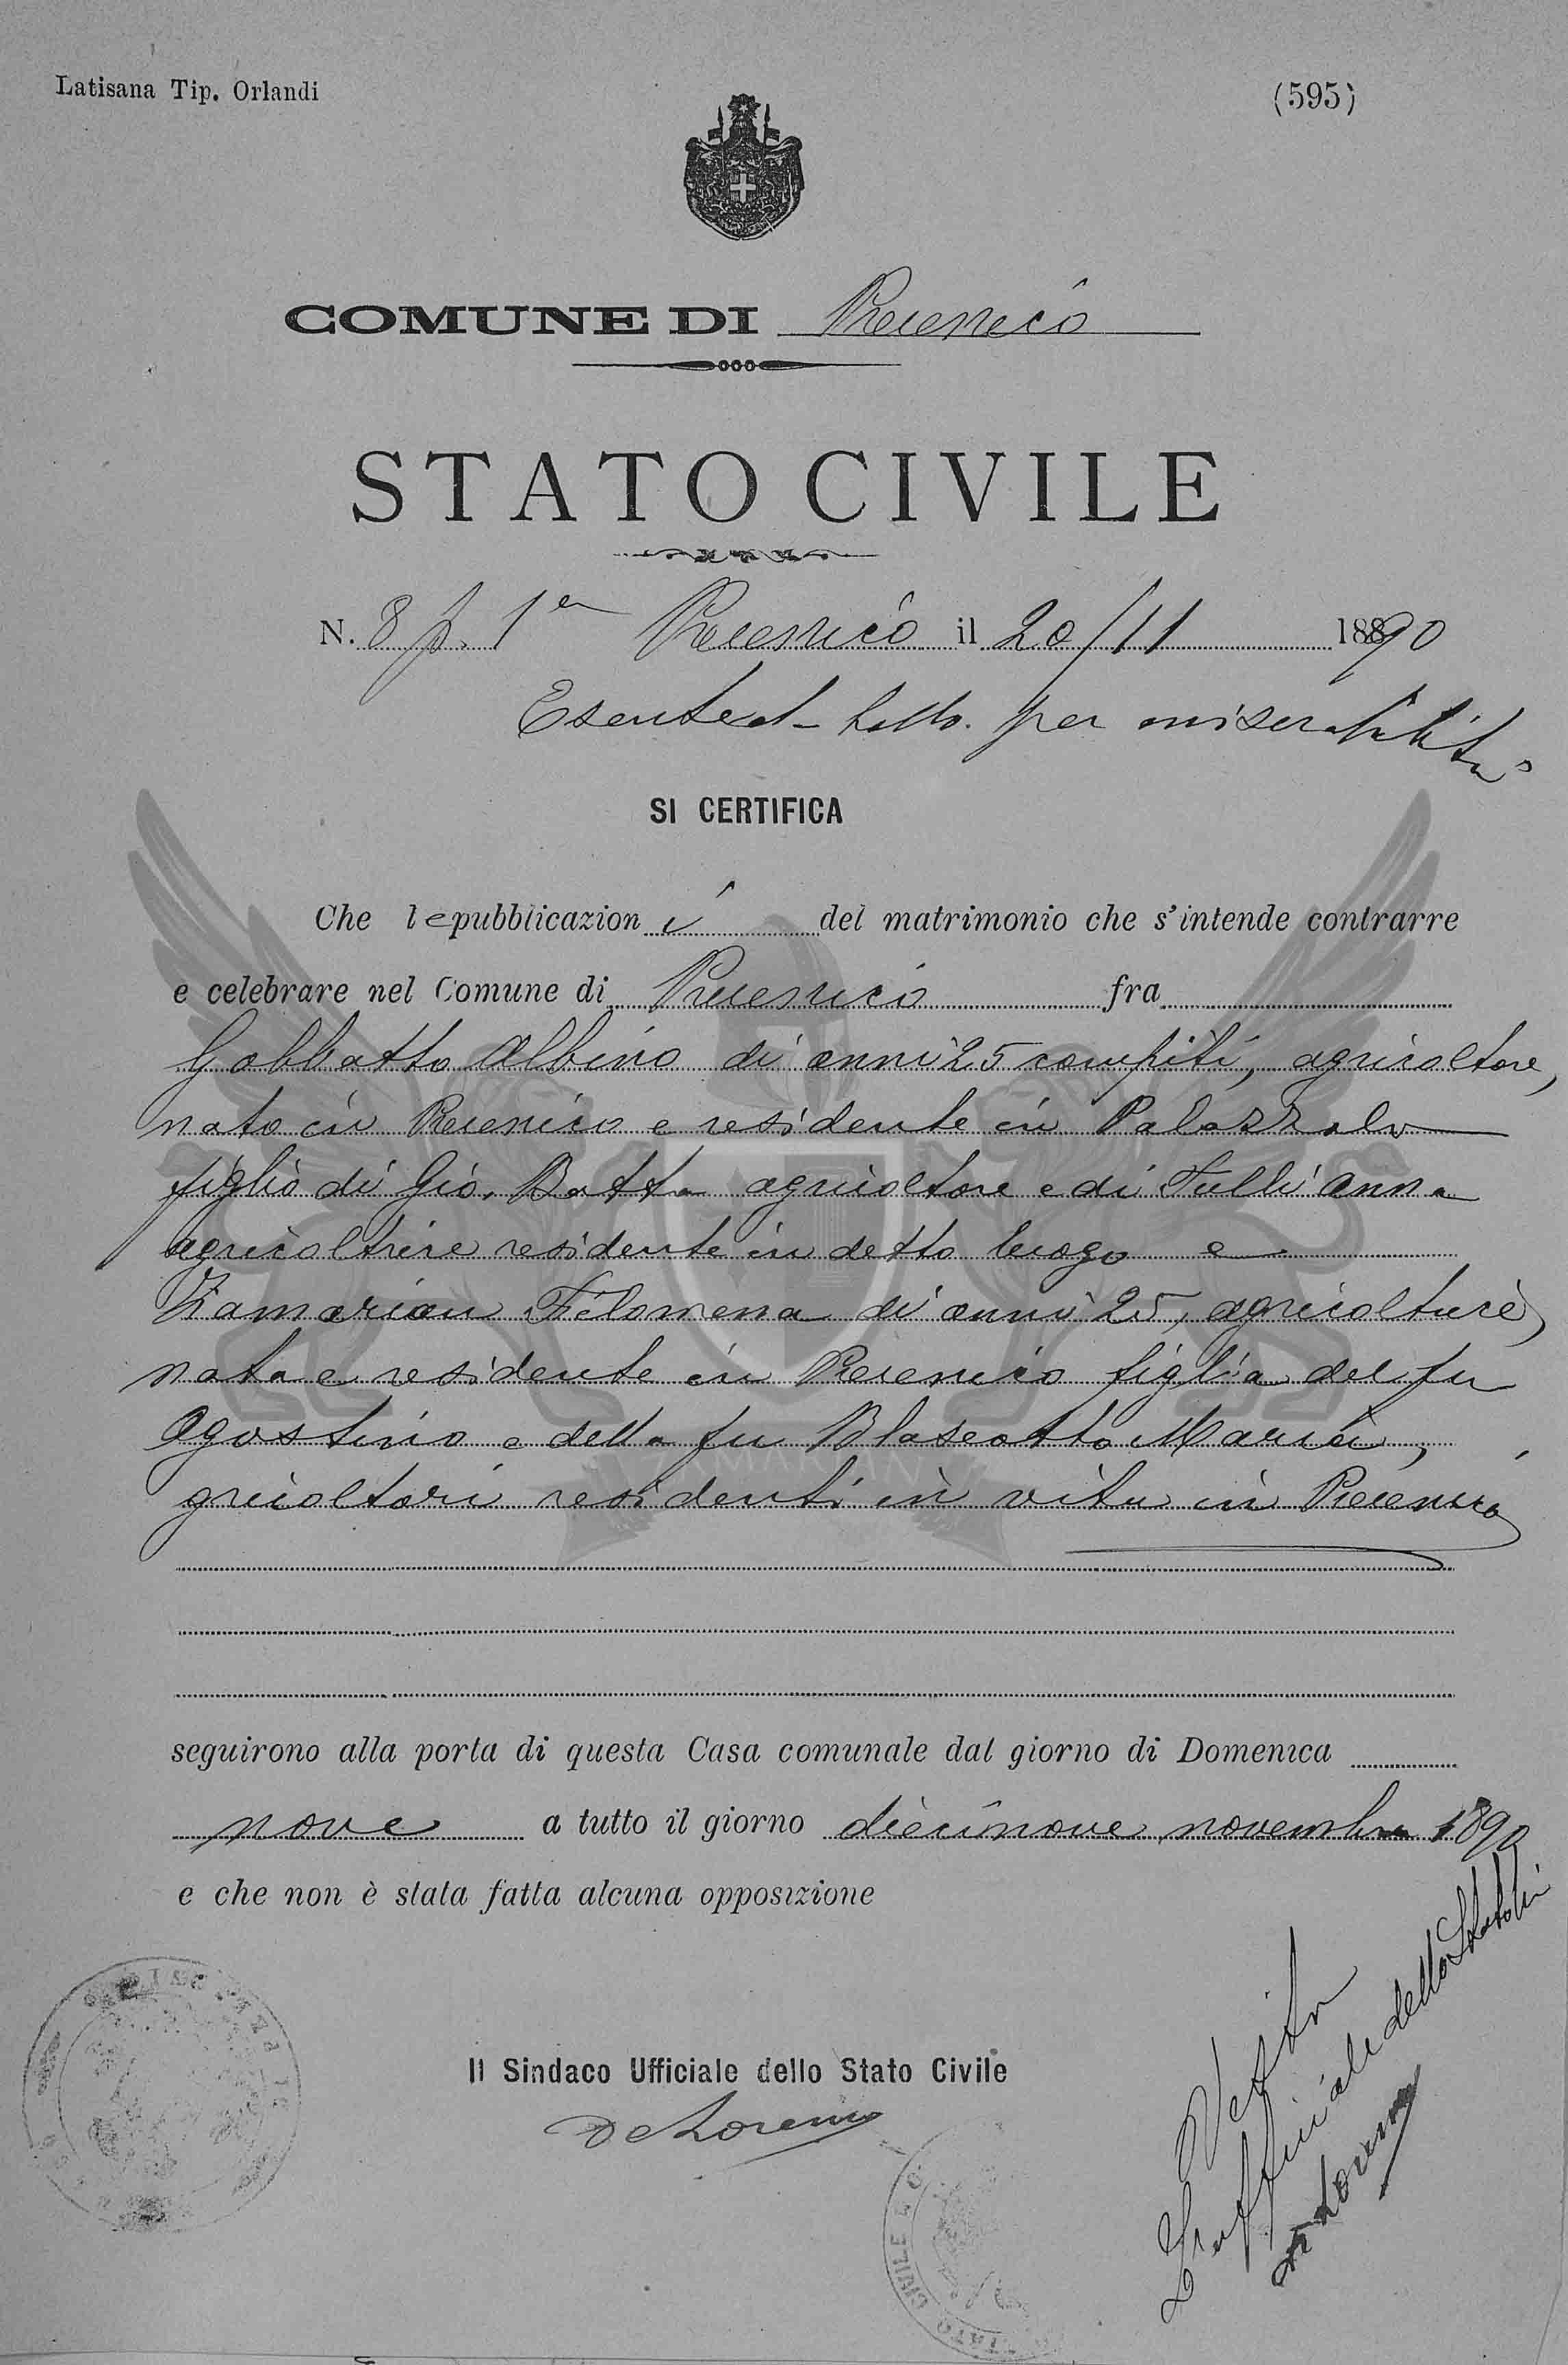 Latisana Tip. Orlandi
(595)
COMUNE DI Precenico
STATO CIVILE
N. 8 p. 1a Precenico il 20/11 1890
Esente di bollo per miserabilità
SI CERTIFICA
Che le pubblicazioni del matrimonio che s'intende contrarre
e celebrare nel Comune di Precenico fra
Gobbatto Albino di anni 25 compiti, agricoltore,
nato in Precenico e residente in Palazzolo
figlio di Gio. Batta agricoltore e di Tulli Anna
agricoltrice residente in detto luogo e
Zamarian Filomena di anni 25, agricoltrice,
nata e residente in Precenico figlia del fu
Agostino e della fu Blaseotto Maria,
gricoltori residenti in vita in Precenico
seguirono alla porta di questa Casa comunale dal giorno di Domenica
nove a tutto il giorno diecinove novembre 1890
e che non è stata fatta alcuna opposizione
Il Sindaco Ufficiale dello Stato Civile
De Lorenzo
Visto
L'ufficiale dello Stato Civ
De Lorenzo
STATO CIVILE